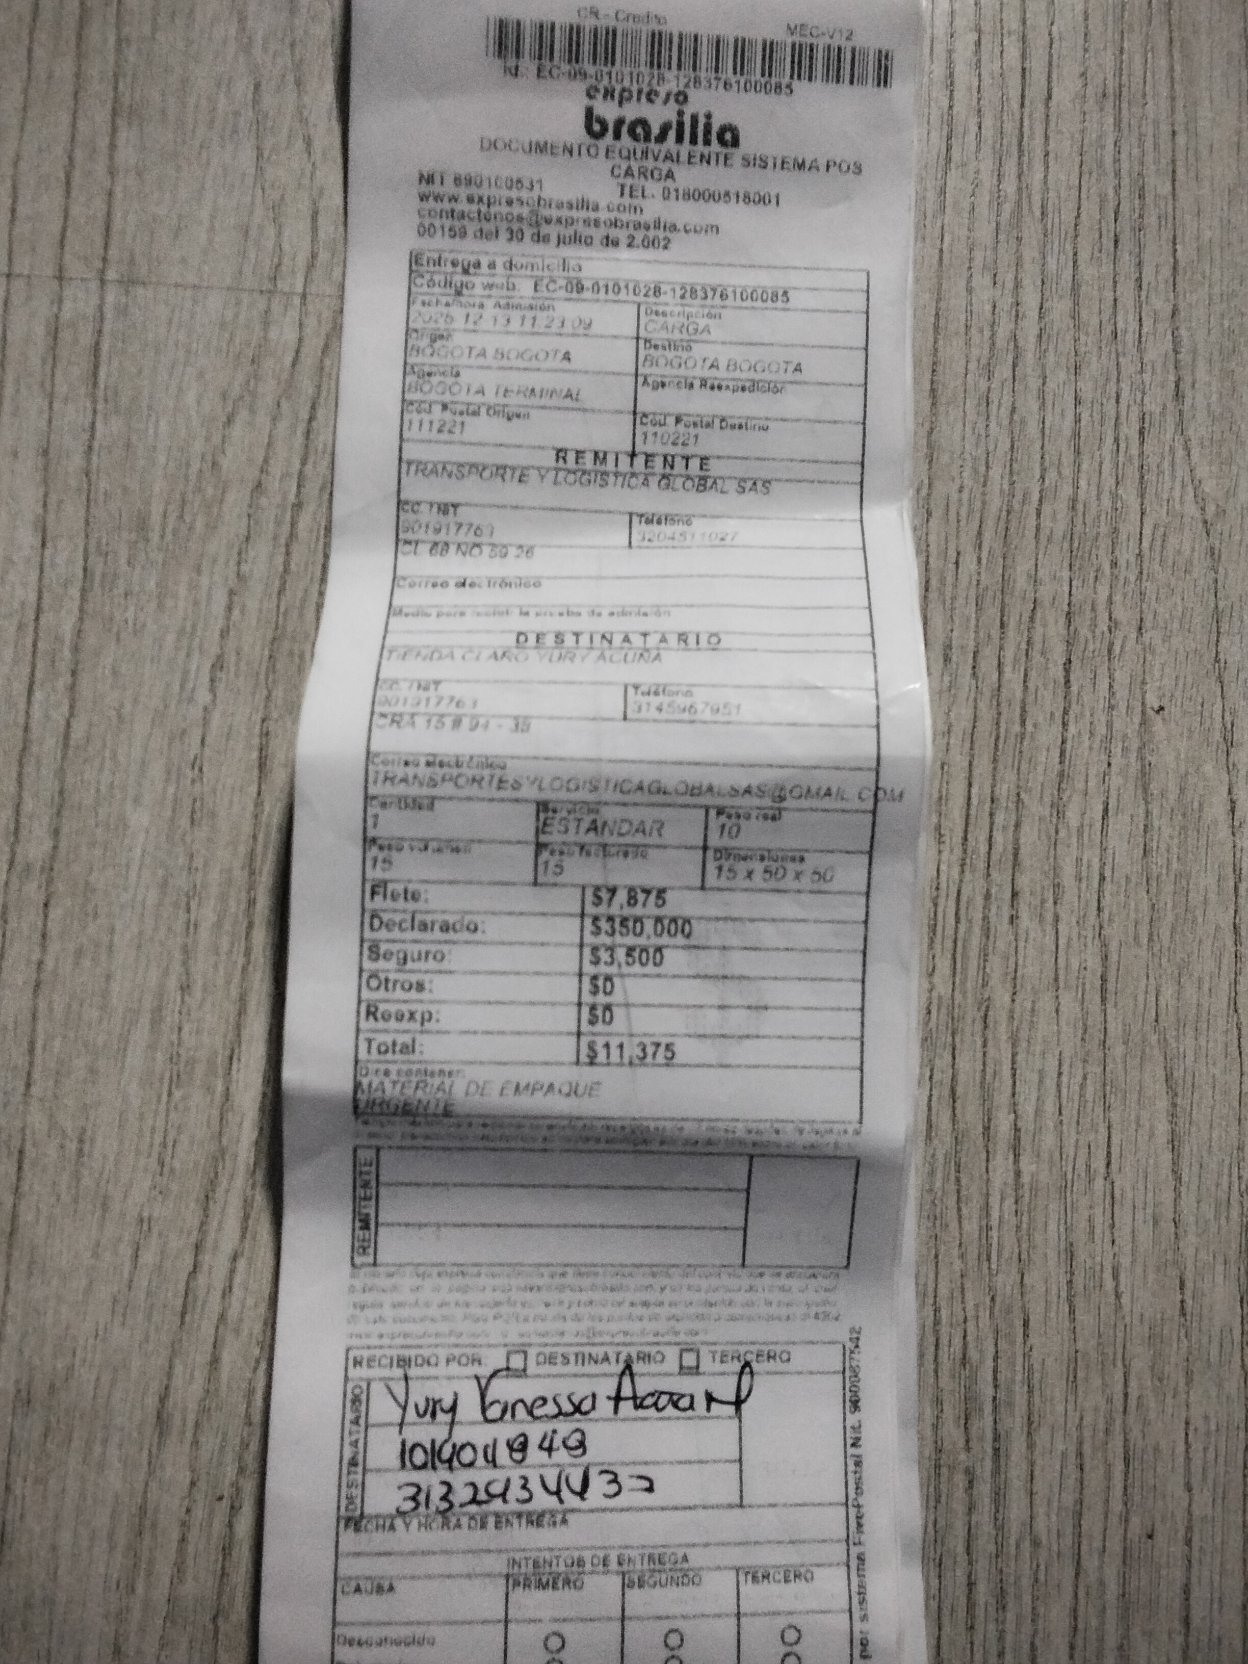 CR - Credito
MEC-V12
Id.: EC-09-0101028-128376100085
expreso
brasilia
DOCUMENTO EQUIVALENTE SISTEMA POS
CARGA
NIT 890100531 TEL. 018000518001
www.expresobrasilia.com
contactenos@expresobrasilia.com
00159 del 30 de julio de 2.002
Entrega a domicilio
Código web: EC-09-0101028-128376100085
Fecha/hora Admisión Descripción
2025-12-13 11:23:09 CARGA
Origen Destino
BOGOTA BOGOTA BOGOTA BOGOTA
Agencia Agencia Reexpedición
BOGOTA TERMINAL
Cód. Postal Origen Cód. Postal Destino
111221 110221
REMITENTE
TRANSPORTE Y LOGISTICA GLOBAL SAS
CC. / NIT Teléfono
901917763 3204511027
CL 68 NO 69 26
Correo electrónico
Medio para recibir la prueba de admisión
DESTINATARIO
TIENDA CLARO YURY ACUÑA
CC. / NIT Teléfono
901917763 3145967951
CRA 15 # 94 - 35
Correo electrónico
TRANSPORTESYLOGISTICAGLOBALSAS@GMAIL.COM
Cantidad Servicio Peso real
1 ESTANDAR 10
Peso volumen Peso facturado Dimensiones
15 15 15 x 50 x 50
Flete: $7,875
Declarado: $350,000
Seguro: $3,500
Otros: $0
Reexp: $0
Total: $11,375
Dice contener:
MATERIAL DE EMPAQUE
URGENTE
REMITENTE
RECIBIDO POR: DESTINATARIO TERCERO
DESTINATARIO
Yury Vanessa
3132934432
FECHA Y HORA DE ENTREGA
INTENTOS DE ENTREGA
CAUSA PRIMERO SEGUNDO TERCERO
Desconocido
por sistema Fivo Postal Nit. 900087542